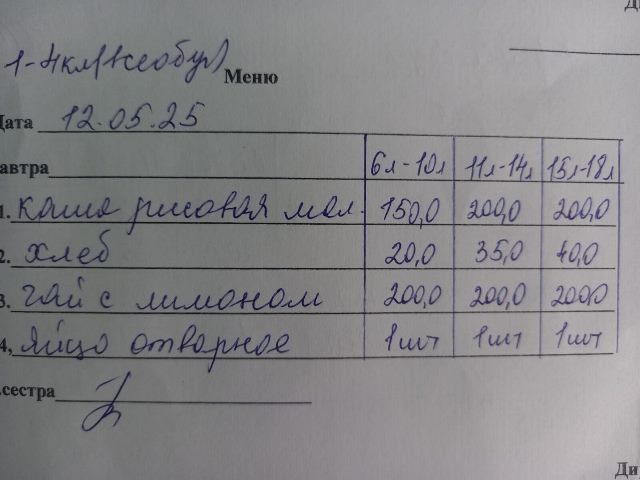 Ди
1-4кл(Всеобуч)
Меню
Дата 12.05.25
автра 6л-10л 11л-14л 15л-18л
1. каша рисовая мол. 150,0 200,0 200,0
2. хлеб 20,0 35,0 40,0
3. чай с лимоном 200,0 200,0 200,0
4, яйцо отварное 1шт 1шт 1шт
.сестра
Ди